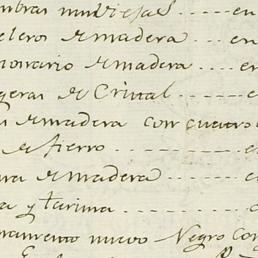 mbras muy viejas ------ en
eleros de madera ..... en
ionario de madera .... e
geras de Cristal ------ e
de madera con quatro
de fierro ------ e
ra de madera ------ e
a y tarima ------ e
ramento nuevo Negro con